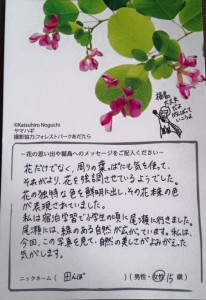 ©Katsuhiro Noguchi
ヤマハギ
撮影協力フォレストパークあだたら
福島
大丈夫
だよ
がんばって
いこうよ
〜花の思い出や福島へのメッセージをご記入ください〜
花だけでなく、周りの葉っぱたも気を使って、
そおがより、花を強調させているようでした。
花の独特な色を鮮明に出し、その花本来の色
が表現されていました。
私は宿泊学習で小学生の頃に尾瀬に行きました。
尾瀬には、緑のある自然が広がっています。私は、
今回、この写真を見て、自然の美しさがよみがえった
気がします。
ニックネーム( 田んぼ )(男性・女性 15 歳)